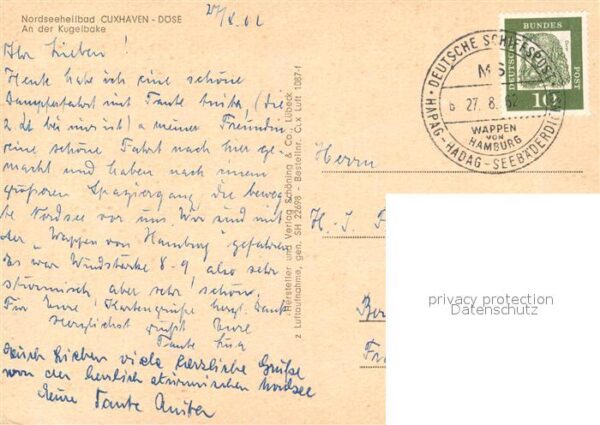 Nordseeheilbad CUXHAVEN - DÖSE
An der Kugelbake
27/8.62
Ihr Lieben!
Heute habe ich eine schöne
Dampferfahrt mit Tante (die
z. Zt bei mir ist) u meiner Freundin
eine schöne Fahrt nach hier ge-
macht und haben nach einem
größeren Spaziergang die beweg-
te Nordsee vor uns. Wir sind mit
der "Wappen von Hamburg" gefahren
Es war Windstärke 8-9 also sehr
stürmisch, aber sehr schön.
Für Eure Kartengrüße herzl. Dank
Herzlichst grüßt Eure
Tante
Euch Lieben viele herzliche Grüße
von der herrlich stürmischen Nordsee
Eure Tante
Hersteller und Verlag Schöning & Co., Lübeck
z Luftaufnahme, gen. SH 22698 - Bestellnr. Cux Luft 1087-f
DEUTSCHE SCHIFFSPOST
MS
27. 8. 62
WAPPEN
VON
HAMBURG
HAPAG-HADAG-SEEBÄDERDIENST
DEUTSCHE
BUNDES
POST
10
Herrn
H. - J. F
privacy protection
Datenschutz